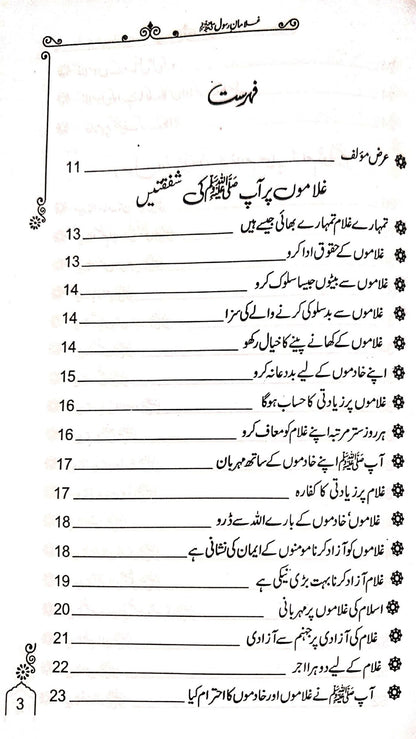 غلامان رسول ﷺ
فہرست
عرض مؤلف 11
غلاموں پر آپ ﷺ کی شفقتیں
تمہارے غلام تمہارے بھائی جیسے ہیں 13
غلاموں کے حقوق ادا کرو 13
غلاموں سے بیٹوں جیسا سلوک کرو 14
غلاموں سے بدسلوکی کرنے والے کی سزا 14
غلاموں کے کھانے پینے کا خیال رکھو 14
اپنے خادموں کے لیے بددعا نہ کرو 15
غلاموں پر زیادتی کا حساب ہوگا 16
ہر روز ستر مرتبہ اپنے غلام کو معاف کرو 16
آپ ﷺ اپنے خادموں کے ساتھ مہربان 17
غلام پر زیادتی کا کفارہ 17
غلاموں/خادموں کے بارے اللہ سے ڈرو 18
غلاموں کو آزاد کرنا مومنوں کے ایمان کی نشانی ہے 18
غلام آزاد کرنا بہت بڑی نیکی ہے 19
اسلام کی غلاموں پر مہربانی 20
غلام کی آزادی پر جہنم سے آزادی 21
غلام کے لیے دوہرا اجر 22
آپ ﷺ نے غلاموں اور خادموں کا احترام کیا 23
3